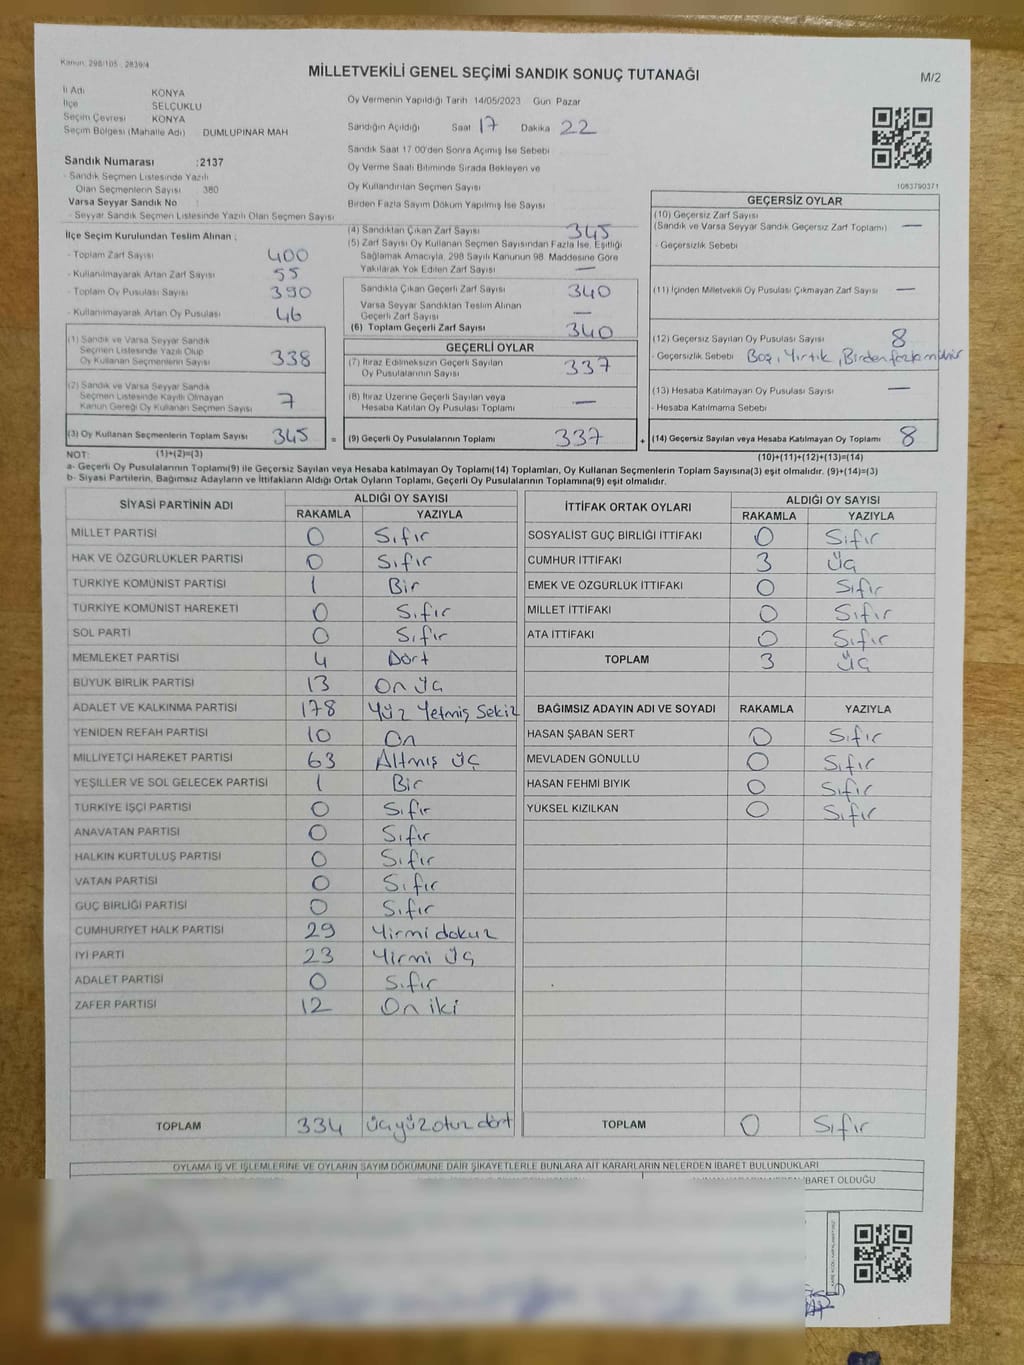 Kanun: 298/105 , 2839/4
MİLLETVEKİLİ GENEL SEÇİMİ SANDIK SONUÇ TUTANAĞI
M/2
İl Adı KONYA
İlçe SELÇUKLU
Seçim Çevresi KONYA
Seçim Bölgesi (Mahalle Adı) DUMLUPINAR MAH
Sandık Numarası :2137
- Sandık Seçmen Listesinde Yazılı
Olan Seçmenlerin Sayısı 380
Varsa Seyyar Sandık No :
- Seyyar Sandık Seçmen Listesinde Yazılı Olan Seçmen Sayısı
Oy Vermenin Yapıldığı Tarih 14/05/2023 Gün Pazar
Sandığın Açıldığı Saat 17 Dakika 22
Sandık Saat 17:00'den Sonra Açımış İse Sebebi
Oy Verme Saati Bitiminde Sırada Bekleyen ve
Oy Kullandırılan Seçmen Sayısı
Birden Fazla Sayım Döküm Yapılmış İse Sayısı
1083790371
İlçe Seçim Kurulundan Teslim Alınan :
- Toplam Zarf Sayısı 400
- Kullanılmayarak Artan Zarf Sayısı 55
- Toplam Oy Pusulası Sayısı 390
- Kullanılmayarak Artan Oy Pusulası 46
(1) Sandık ve Varsa Seyyar Sandık
Seçmen Listesinde Yazılı Olup
Oy Kullanan Seçmenlerin Sayısı 338
(2) Sandık ve Varsa Seyyar Sandık
Seçmen Listesinde Kayıtlı Olmayan
Kanun Gereği Oy Kullanan Seçmen Sayısı 7
(3) Oy Kullanan Seçmenlerin Toplam Sayısı 345 =
(4) Sandıktan Çıkan Zarf Sayısı 345
(5) Zarf Sayısı Oy Kullanan Seçmen Sayısından Fazla İse, Eşitliği
Sağlamak Amacıyla, 298 Sayılı Kanunun 98. Maddesine Göre
Yakılarak Yok Edilen Zarf Sayısı —
Sandıkta Çıkan Geçerli Zarf Sayısı 340
Varsa Seyyar Sandıktan Teslim Alınan
Geçerli Zarf Sayısı —
(6) Toplam Geçerli Zarf Sayısı 340
GEÇERLİ OYLAR
(7) İtiraz Edilmeksizin Geçerli Sayılan
Oy Pusulalarının Sayısı 337
(8) İtiraz Üzerine Geçerli Sayılan veya
Hesaba Katılan Oy Pusulası Toplamı —
(9) Geçerli Oy Pusulalarının Toplamı 337 +
GEÇERSİZ OYLAR
(10) Geçersiz Zarf Sayısı
(Sandık ve Varsa Seyyar Sandık Geçersiz Zarf Toplamı) —
- Geçersizlik Sebebi
(11) İçinden Milletvekili Oy Pusulası Çıkmayan Zarf Sayısı —
(12) Geçersiz Sayılan Oy Pusulası Sayısı 8
- Geçersizlik Sebebi Boş, Yırtık, Birden fazla mühür
(13) Hesaba Katılmayan Oy Pusulası Sayısı —
- Hesaba Katılmama Sebebi
(14) Geçersiz Sayılan veya Hesaba Katılmayan Oy Toplamı 8
NOT: (1)+(2)=(3)
(10)+(11)+(12)+(13)=(14)
a- Geçerli Oy Pusulalarının Toplamı(9) ile Geçersiz Sayılan veya Hesaba katılmayan Oy Toplamı(14) Toplamları, Oy Kullanan Seçmenlerin Toplam Sayısına(3) eşit olmalıdır. (9)+(14)=(3)
b- Siyasi Partilerin, Bağımsız Adayların ve İttifakların Aldığı Ortak Oyların Toplamı, Geçerli Oy Pusulalarının Toplamına(9) eşit olmalıdır.
SİYASİ PARTİNİN ADI ALDIĞI OY SAYISI
RAKAMLA YAZIYLA
MİLLET PARTİSİ 0 Sıfır
HAK VE ÖZGÜRLÜKLER PARTİSİ 0 Sıfır
TÜRKİYE KOMÜNİST PARTİSİ 1 Bir
TÜRKİYE KOMÜNİST HAREKETİ 0 Sıfır
SOL PARTİ 0 Sıfır
MEMLEKET PARTİSİ 4 Dört
BÜYÜK BİRLİK PARTİSİ 13 On üç
ADALET VE KALKINMA PARTİSİ 178 Yüz Yetmiş Sekiz
YENİDEN REFAH PARTİSİ 10 On
MİLLİYETÇİ HAREKET PARTİSİ 63 Altmış üç
YEŞİLLER VE SOL GELECEK PARTİSİ 1 Bir
TÜRKİYE İŞÇİ PARTİSİ 0 Sıfır
ANAVATAN PARTİSİ 0 Sıfır
HALKIN KURTULUŞ PARTİSİ 0 Sıfır
VATAN PARTİSİ 0 Sıfır
GÜÇ BİRLİĞİ PARTİSİ 0 Sıfır
CUMHURİYET HALK PARTİSİ 29 Yirmi dokuz
İYİ PARTİ 23 Yirmi üç
ADALET PARTİSİ 0 Sıfır
ZAFER PARTİSİ 12 On iki
TOPLAM 334 üçyüzotuz dört
İTTİFAK ORTAK OYLARI ALDIĞI OY SAYISI
RAKAMLA YAZIYLA
SOSYALİST GÜÇ BİRLİĞİ İTTİFAKI 0 Sıfır
CUMHUR İTTİFAKI 3 üç
EMEK VE ÖZGÜRLÜK İTTİFAKI 0 Sıfır
MİLLET İTTİFAKI 0 Sıfır
ATA İTTİFAKI 0 Sıfır
TOPLAM 3 üç
BAĞIMSIZ ADAYIN ADI VE SOYADI RAKAMLA YAZIYLA
HASAN ŞABAN SERT 0 Sıfır
MEVLADEN GÖNÜLLÜ 0 Sıfır
HASAN FEHMİ BIYIK 0 Sıfır
YÜKSEL KIZILKAN 0 Sıfır
TOPLAM 0 Sıfır
OYLAMA İŞ VE İŞLEMLERİNE VE OYLARIN SAYIM DÖKÜMÜNE DAİR ŞİKAYETLERLE BUNLARA AİT KARARLARIN NELERDEN İBARET BULUNDUKLARI
İBARET OLDUĞU